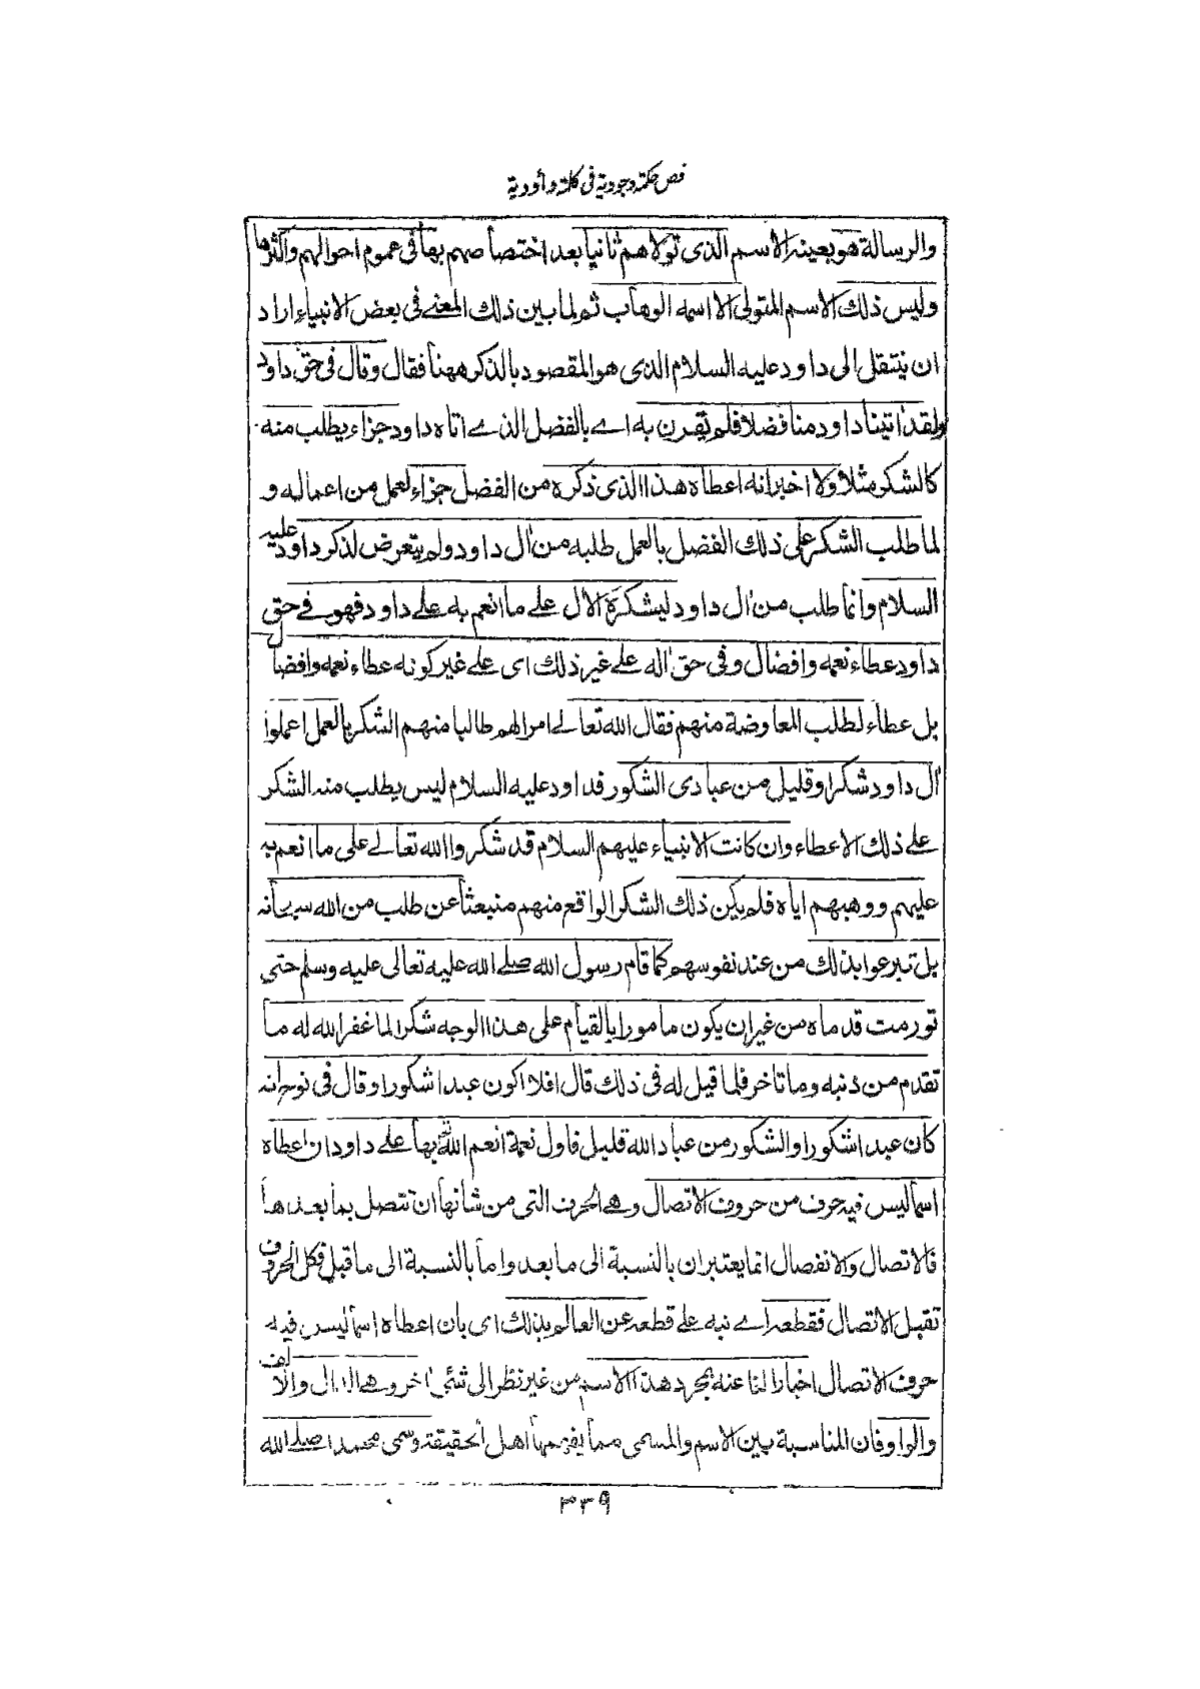 فص حكمة وجودية فى كلمة داودية
والرسالة هو بعينه الاسم الذى تولاهم ثانيا بعد اختصاصهم بها فى عموم احوالهم واكثرها
وليس ذلك الاسم المتولى الا اسمه الوهاب ثم لما بين ذلك المعنے فى بعض الانبياء اراد
ان ينتقل الى داود عليه السلام الذى هو المقصود بالذكر ههنا فقال وقال فى حق داود
ولقد اتينا داود منا فضلا فلم يقرن به اے بالفضل الذے اتاه داود جزاء يطلب منه
كالشكر مثلا ولا اخبر انه اعطاه هذا الذى ذكره من الفضل جزاء لعمل من اعماله و
لما طلب الشكر على ذلك الفضل بالعمل طلبه من اٰل داود ولم يتعرض لذكر داود عليه
السلام وانما طلب من اٰل داود ليشكره الاٰل علے ما انعم به علے داود فهو فے حق
داود عطاء نعمة وافضال وفى حق اٰله علے غير ذلك اى علے غير كونه عطاء نعمة وافضال
بل عطاء لطلب المعاوضة منهم فقال الله تعالے امرا لهم طالبا منهم الشكر بالعمل اعملوا
اٰل داود شكرا وقليل من عبادى الشكور فداود عليه السلام ليس يطلب منه الشكر
علے ذلك الاعطاء وان كانت الانبياء عليهم السلام قد شكروا الله تعالے على ما انعم به
عليهم ووهبهم اياه فلم يكن ذلك الشكر الواقع منهم منبعثا عن طلب من الله سبحانه
بل تبرعوا بذلك من عند نفوسهم كما قام رسول الله صلے الله عليه تعالى عليه وسلم حتى
تورمت قدماه من غير ان يكون مامورا بالقيام على هذا الوجه شكرا لما غفر الله له ما
تقدم من ذنبه وما تاخر فلما قيل له فى ذلك قال افلا اكون عبدا شكورا وقال فى نوح انه
كان عبدا شكورا والشكور من عباد الله قليل فاول نعمة انعم الله بها علے داود ان اعطاه
اسما ليس فيه حرف من حروف الاتصال وهے الحرف التى من شانها ان تتصل بما بعدها
فالاتصال والانفصال انما يعتبران بالنسبة الى ما بعد واما بالنسبة الى ما قبل فكل الحروف
تقبل الاتصال فقطعه اے نبه علے قطعه عن العالم بذلك اى بان اعطاه اسما ليس فيه
حرف الاتصال اخبارا لنا عنه بمجرد هذا الاسم من غير نظر الى شئ اٰخر وهے الدال والالف
والواو فان المناسبة بين الاسم والمسمى مما يفهمها اهل الحقيقة وسمى محمدا صلے الله
٣٣٩